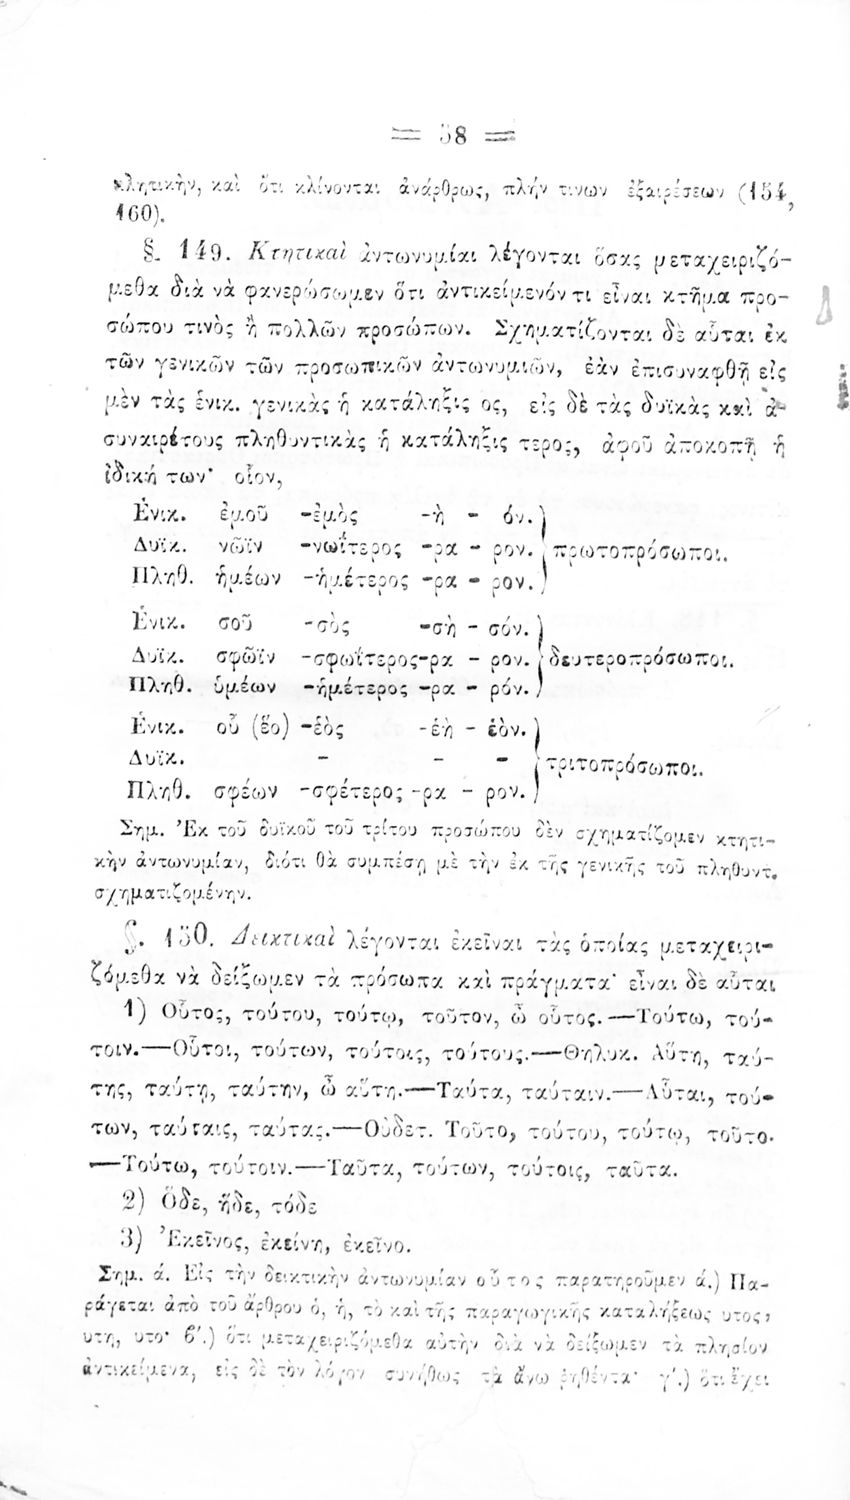 = 58 =
κλητικὴν, καὶ ὅτι κλίνονται ἀνάρθρως, πλήν τινων ἐξαιρέσεων (154,
160).
§. 149. Κτητικαὶ ἀντωνυμίαι λέγονται ὅσας μεταχειριζό-
μεθα διὰ νὰ φανερώσωμεν ὅτι ἀντικείμενόν τι εἶναι κτῆμα προ-
σώπου τινὸς ἢ πολλῶν προσώπων. Σχηματίζονται δὲ αὗται ἐκ
τῶν γενικῶν τῶν προσωπικῶν ἀντωνυμιῶν, ἐὰν ἐπισυναφθῇ εἰς
μὲν τὰς ἑνικ. γενικὰς ἡ κατάληξις ος, εἰς δὲ τὰς δυϊκὰς καὶ ἀ-
συναιρέτους πληθυντικὰς ἡ κατάληξις τερος, ἀφοῦ ἀποκοπῇ ἡ
ἰδική των· οἷον,
Ἑνικ. ἐμοῦ -ἐμὸς -ὴ - όν.
Δυϊκ. νῶϊν -νωΐτερος -ρα - ρον. } πρωτοπρόσωποι.
Πληθ. ἡμέων -ἡμέτερος -ρα - ρον.
Ἑνικ. σοῦ -σὸς -σὴ - σόν.
Δυϊκ. σφῶϊν -σφωΐτερος -ρα - ρον. } δευτεροπρόσωποι.
Πληθ. ὑμέων -ἡμέτερος -ρα - ρόν.
Ἑνικ. οὗ (ἕο) -ἑὸς -ἑὴ - ἑὸν.
Δυϊκ. - - - } τριτοπρόσωποι.
Πληθ. σφέων -σφέτερος -ρα - ρον.
Σημ. Ἐκ τοῦ δυϊκοῦ τοῦ τρίτου προσώπου δὲν σχηματίζομεν κτητι-
κὴν ἀντωνυμίαν, διότι θὰ συμπέσῃ μὲ τὴν ἐκ τῆς γενικῆς τοῦ πληθυντ.
σχηματιζομένην.
§. 150. Δεικτικαὶ λέγονται ἐκεῖναι τὰς ὁποίας μεταχειρι-
ζόμεθα νὰ δείξωμεν τὰ πρόσωπα καὶ πράγματα· εἶναι δὲ αὗται
1) Οὗτος, τούτου, τούτῳ, τοῦτον, ὦ οὗτος.—Τούτω, τού-
τοιν.—Οὗτοι, τούτων, τούτοις, τούτους.—Θηλυκ. Αὕτη, ταύ-
της, ταύτῃ, ταύτην, ὦ αὕτη.—Ταύτα, ταύταιν.—Αὗται, τού-
των, ταύταις, ταύτας.—Οὐδετ. Τοῦτο, τούτου, τούτῳ, τοῦτο.
—Τούτω, τούτοιν.—Ταῦτα, τούτων, τούτοις, ταῦτα.
2) Ὅδε, ἥδε, τόδε
3) Ἐκεῖνος, ἐκείνη, ἐκεῖνο.
Σημ. ά. Εἰς τὴν δεικτικὴν ἀντωνυμίαν οὗτος παρατηροῦμεν ά.) Πα-
ράγεται ἀπὸ τοῦ ἄρθρου ὁ, ἡ, τὸ καὶ τῆς παραγωγικῆς καταλήξεως υτος,
υτη, υτο· β΄.) ὅτι μεταχειριζόμεθα αὐτὴν διὰ νὰ δείξωμεν τὰ πλησίον
ἀντικείμενα, εἰς δὲ τὸν λόγον συνήθως τὰ ἄνω ῥηθέντα· γ΄.) ὅτι ἔχει